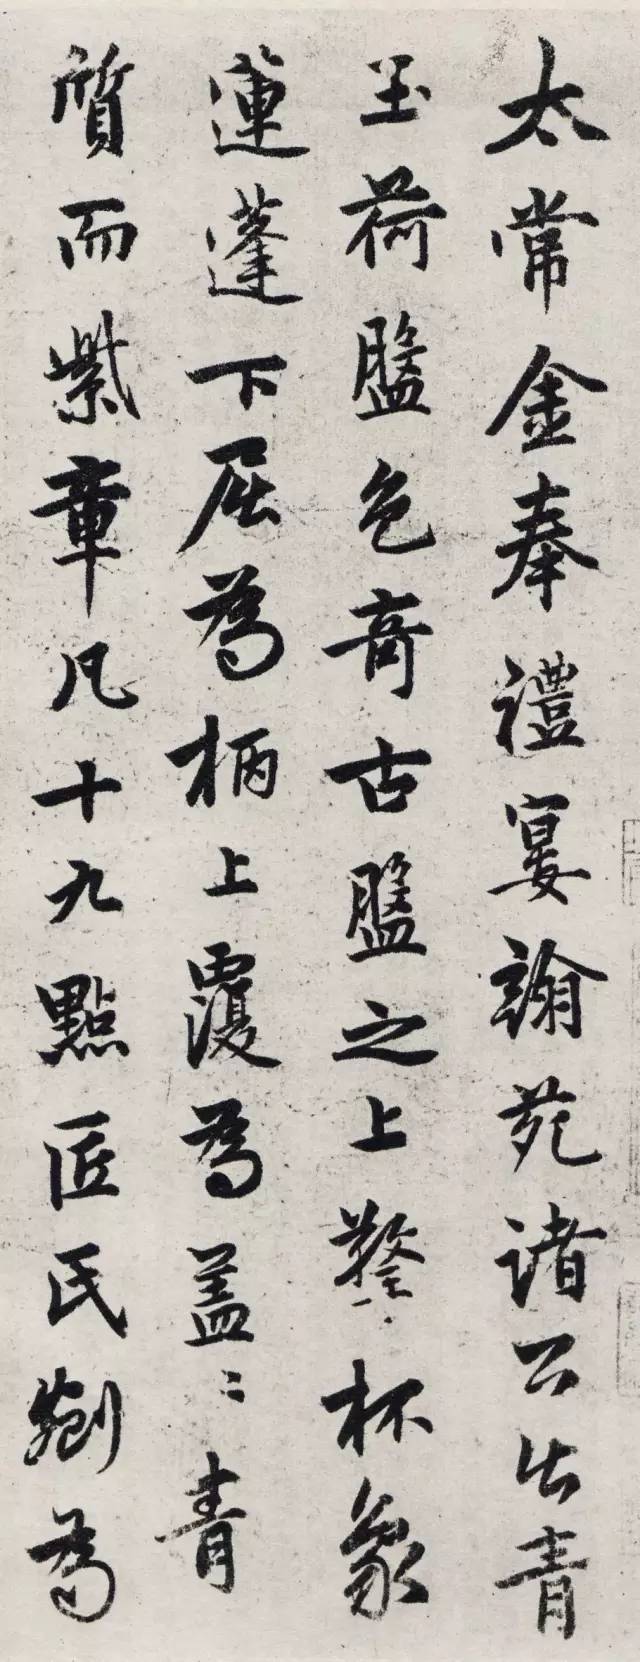 太常金奉禮宴翰苑諸公出青
玉荷盤色奇古盤之上鷖杯象
蓮蓬下屈為柄上覆為蓋〻青
質而紫章凡十九點匠氏劖為